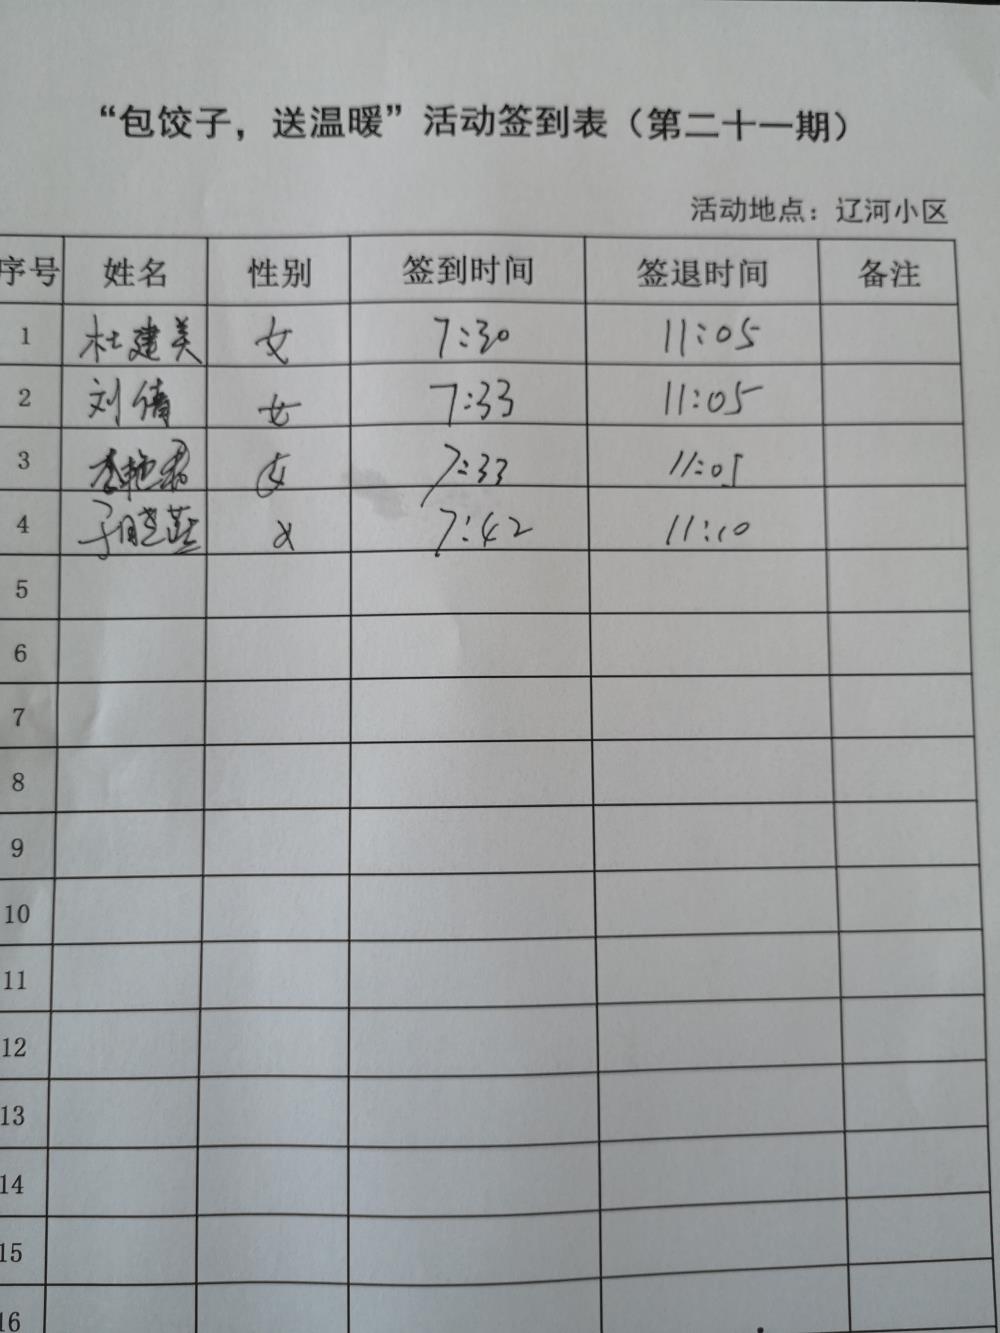 “包饺子，送温暖”活动签到表（第二十一期）
活动地点：辽河小区
序号 姓名 性别 签到时间 签退时间 备注
1 杜建美 女 7:30 11:05
2 刘倩 女 7:33 11:05
3 李艳君 女 7:33 11:05
4 女 7:42 11:10
5
6
7
8
9
10
11
12
13
14
15
16